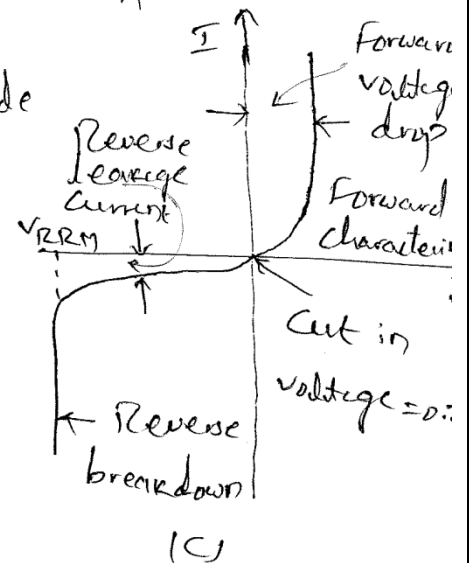 de
I
Forwar
voltag
drop
Reverse
leakage
current
VRRM
Forward
characteri
Cut in
voltage = 0.
Reverse
breakdown
(C)